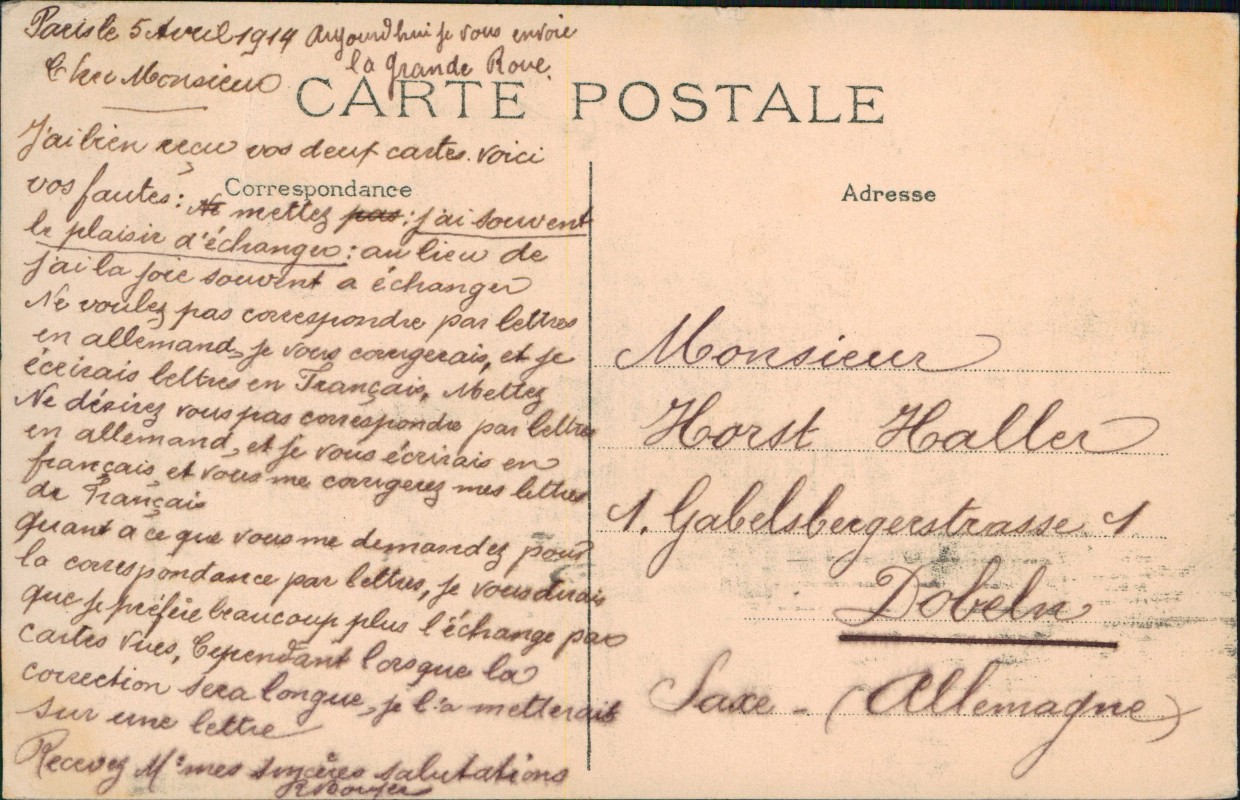 Paris le 5 Avril 1914 Aujourd'hui je vous envoie
la grande Roue.
Cher Monsieur
CARTE POSTALE
J'ai bien reçu vos deux cartes. Voici
Correspondance
vos fautes: Ne mettez pas: j'ai souvent
le plaisir d'échanger: au lieu de
j'ai la joie souvent a échanger
Ne voulez pas correspondre par lettres
en allemand, je vous corrigerais, et je
écrirais lettres en Français, Mettez
Ne désirez vous pas correspondre par lettres
en allemand, et je vous écrirais en
français et vous me corrigerez mes lettres
de Français
Quant à ce que vous me demandez pour
la correspondance par lettres, je vous dirais
que je préfère beaucoup plus l'échange par
cartes vues, Cependant lorsque la
correction sera longue, je l'a metterait
sur une lettre
Recevez Mr mes sincères salutations
Adresse
Monsieur
Horst Haller
1. Gabelsbergerstrasse 1.
Döbeln
Saxe - (Allemagne)